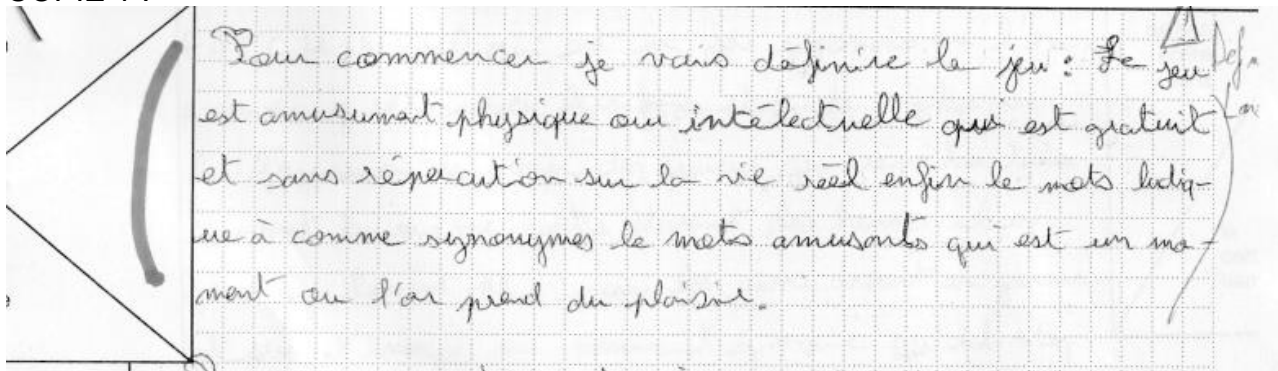 Pour commencer je vais définire le jeu : Le jeu
est amusumant physique ou intélectuelle qui est gratuit
et sans répercution sur la vie réel enfin le mots ludiq-
ue à comme synonymes le mots amusants qui est un mo-
ment ou l'on prend du plaisir.